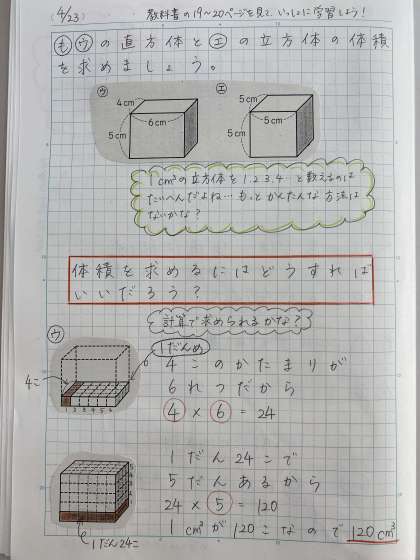 (4/23)
教科書の19〜20ページを見て、いっしょに学習しよう!
も ウの直方体とエの立方体の体積
を求めましょう。
ウ
エ
4cm
6cm
5cm
5cm
5cm
5cm
1cm³の立方体を1.2.3.4…と数えるのは
たいへんだよね…もっとかんたんな方法は
ないかな?
体積を求めるにはどうすれば
いいだろう?
計算で求められるかな?
ウ
1だんめ
4こ
1 2 3 4 5 6
4このかたまりが
6れつだから
4×6=24
1だん24こで
5だんあるから
24×5=120
1cm³が120こなので120cm³
1だん24こ